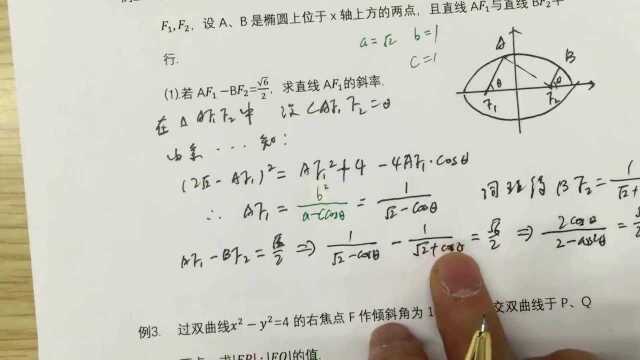 F₁,F₂，设 A、B 是椭圆上位于 x 轴上方的两点，且直线 AF₁与直线 BF₂平
行.
a=√2 b=1
c=1
(1).若 AF₁−BF₂=√6/2，求直线 AF₁的斜率.
在△AF₁F₂中 设∠AF₁F₂=θ
知:
(2√2−AF₁)²=AF₁²+4−4AF₁·cosθ
∴ AF₁=b²/(a−c cosθ)=1/(√2−cosθ)
同理得 BF₂=1/(√2+
AF₁−BF₂=√6/2 ⇒ 1/(√2−cosθ)−1/(√2+cosθ)=√6/2 ⇒ 2cosθ/(2−cos²θ)=
A
B
θ
θ
F₁
F₂
例3. 过双曲线x²−y²=4 的右焦点 F 作倾斜角为 1 交双曲线于 P、Q
两点，求|FP|·|FQ|的值.